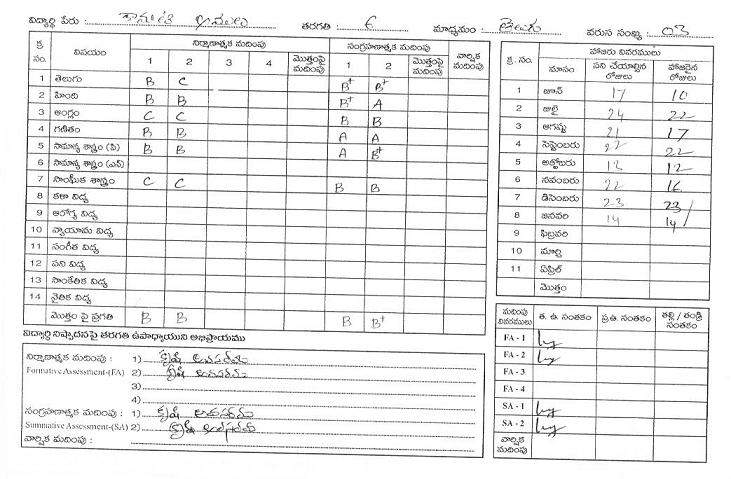 విద్యార్థి పేరు : తరగతి : 6 మాధ్యమం : తెలుగు వరుస సంఖ్య : 03
క్ర. సం. విషయం నిర్మాణాత్మక మదింపు సంగ్రహణాత్మక మదింపు వార్షిక మదింపు
1 2 3 4 మొత్తంపై మదింపు 1 2 మొత్తంపై మదింపు
1 తెలుగు B C B+ B+
2 హింది B B B+ A
3 ఆంగ్లం C C B B
4 గణితం B B A A
5 సామాన్య శాస్త్రం (పి) B B A B+
6 సామాన్య శాస్త్రం (ఎన్)
7 సాంఘీక శాస్త్రం C C B B
8 కళా విద్య
9 ఆరోగ్య విద్య
10 వ్యాయామ విద్య
11 సంగీత విద్య
12 పని విద్య
13 సాంకేతిక విద్య
14 నైతిక విద్య
మొత్తం పై ప్రగతి B B B B+
విద్యార్థి నిష్పాదనపై తరగతి ఉపాధ్యాయుని అభిప్రాయము
నిర్మాణాత్మక మదింపు : 1) కృషి అవసరము
Formative Assessment-(FA) 2) కృషి అవసరము
3)
4)
సంగ్రహణాత్మక మదింపు : 1) కృషి అవసరము
Summative Assessment-(SA) 2) కృషి అవసరము
వార్షిక మదింపు :
హాజరు వివరములు
క్ర. సం. మాసం పని చేయాల్సిన రోజులు హాజరైన రోజులు
1 జూన్ 17 10
2 జులై 24 22
3 ఆగష్టు 21 17
4 సెప్టెంబరు 22 22
5 అక్టోబరు 13 12
6 నవంబరు 22 16
7 డిసెంబరు 23 23
8 జనవరి 14 14
9 ఫిబ్రవరి
10 మార్చి
11 ఏప్రిల్
మొత్తం
మదింపు వివరములు త. ఉ. సంతకం ప్ర.ఉ. సంతకం తల్లి / తండ్రి సంతకం
FA - 1
FA - 2
FA - 3
FA - 4
SA - 1
SA - 2
వార్షిక మదింపు